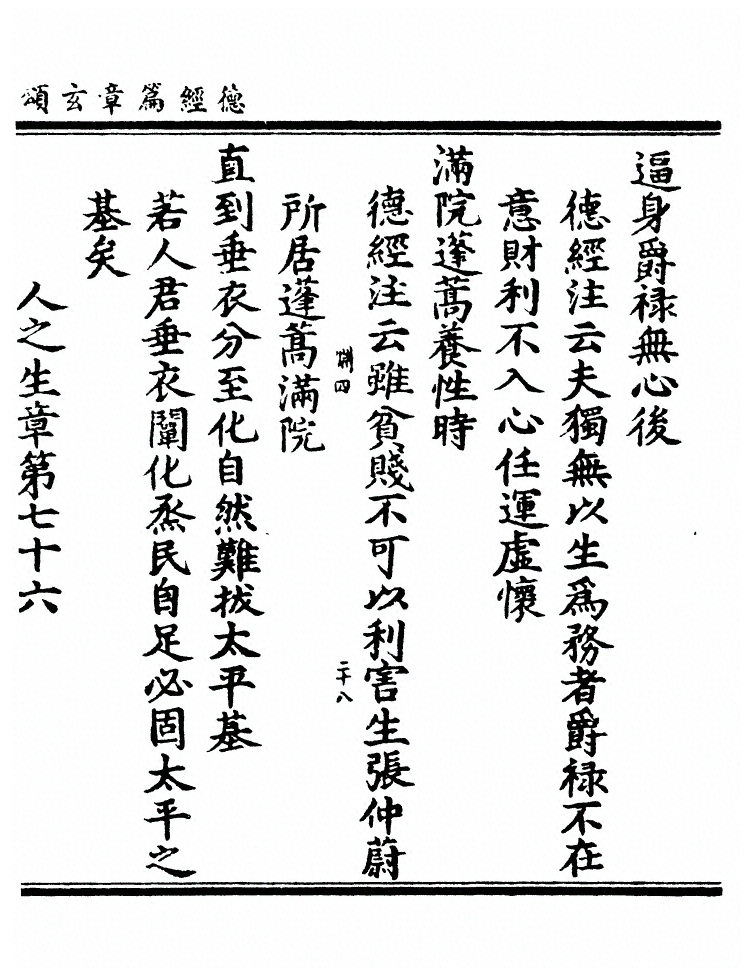 德經篇章玄頌
逼身爵祿無心後
德經注云夫獨無以生爲務者爵祿不在
意財利不入心任運虛懷
滿院蓬蒿養性時
德經注云雖貧賤不可以利害生張仲蔚
四
二十八
所居蓬蒿滿院
直到垂衣分至化自然難拔太平基
若人君垂衣闡化烝民自足必固太平之
基矣
人之生章第七十六